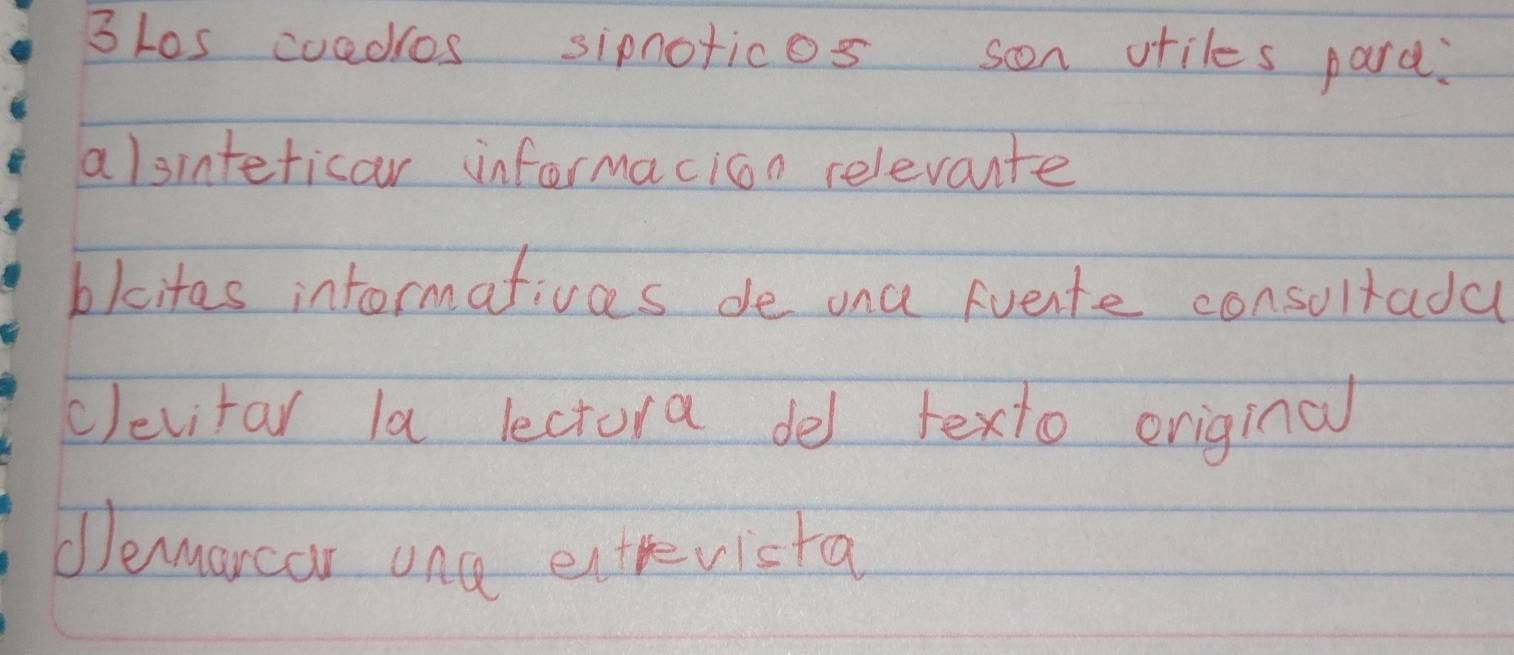 3 Los cuadros sipnoticos son utiles para:
a) sinteticar información relevante
b) citas informativas de una fuente consultada
c) evitar la lectura del texto original
d) enmarcar una entrevista